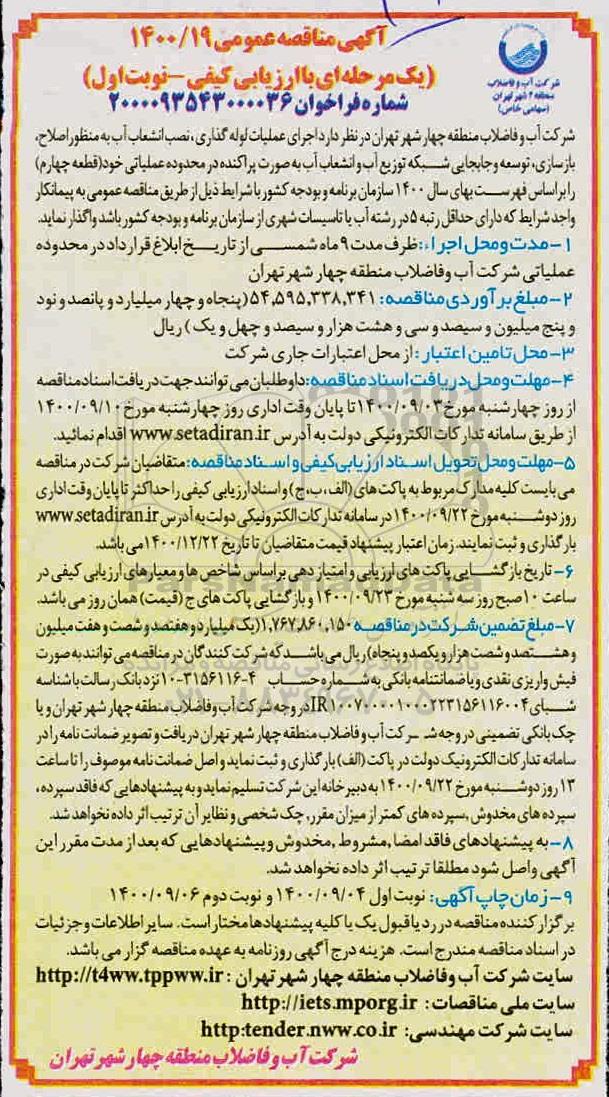 آگهی مناقصه عمومی ۱۴۰۰/۱۹
(یک مرحله ای با ارزیابی کیفی - نوبت اول)
شماره فراخوان ۲۰۰۰۰۹۳۵۴۳۰۰۰۰۳۶
شرکت آب و فاضلاب
منطقه ۴ شهر تهران
(سهامی خاص)
شرکت آب و فاضلاب منطقه چهار شهر تهران در نظر دارد اجرای عملیات لوله گذاری، نصب انشعاب آب به منظور اصلاح،
بازسازی، توسعه و جابجایی شبکه توزیع آب و انشعاب آب به صورت پراکنده در محدوده عملیاتی خود (قطعه چهارم)
را بر اساس فهرست بهای سال ۱۴۰۰ سازمان برنامه و بودجه کشور با شرایط ذیل از طریق مناقصه عمومی به پیمانکار
واجد شرایط که دارای حداقل رتبه ۵ در رشته آب یا تاسیسات شهری از سازمان برنامه و بودجه کشور باشد واگذار نماید.
۱- مدت و محل اجراء: ظرف مدت ۹ ماه شمسی از تاریخ ابلاغ قرارداد در محدوده
عملیاتی شرکت آب و فاضلاب منطقه چهار شهر تهران
۲- مبلغ برآوردی مناقصه: ۵۴,۵۹۵,۳۳۸,۳۴۱ (پنجاه و چهار میلیارد و پانصد و نود
و پنج میلیون و سیصد و سی و هشت هزار و سیصد و چهل و یک) ریال
۳- محل تامین اعتبار: از محل اعتبارات جاری شرکت
۴- مهلت و محل دریافت اسناد مناقصه: داوطلبان می توانند جهت دریافت اسناد مناقصه
از روز چهارشنبه مورخ ۱۴۰۰/۰۹/۰۳ تا پایان وقت اداری روز چهارشنبه مورخ ۱۴۰۰/۰۹/۱۰
از طریق سامانه تدارکات الکترونیکی دولت به آدرس www.setadiran.ir اقدام نمائید.
۵- مهلت و محل تحویل اسناد ارزیابی کیفی و اسناد مناقصه: متقاضیان شرکت در مناقصه
می بایست کلیه مدارک مربوط به پاکت های (الف، ب، ج) و اسناد ارزیابی کیفی را حداکثر تا پایان وقت اداری
روز دوشنبه مورخ ۱۴۰۰/۰۹/۲۲ در سامانه تدارکات الکترونیکی دولت به آدرس www.setadiran.ir
بارگذاری و ثبت نمایند. زمان اعتبار پیشنهاد قیمت متقاضیان تا تاریخ ۱۴۰۰/۱۲/۲۲ می باشد.
۶- تاریخ بازگشایی پاکت های ارزیابی و امتیاز دهی بر اساس شاخص ها و معیارهای ارزیابی کیفی در
ساعت ۱۰ صبح روز سه شنبه مورخ ۱۴۰۰/۰۹/۲۳ و بازگشایی پاکت های ج (قیمت) همان روز می باشد.
۷- مبلغ تضمین شرکت در مناقصه ۱,۷۶۷,۸۶۰,۱۵۰ (یک میلیارد و هفتصد و شصت و هفت میلیون
و هشتصد و شصت هزار و یکصد و پنجاه) ریال می باشد که شرکت کنندگان در مناقصه می توانند به صورت
فیش واریزی نقدی و یا ضمانتنامه بانکی به شماره حساب ۴-۳۱۵۶۱۱۶-۱۰ نزد بانک رسالت با شناسه
شبای IR۱۰۰۷۰۰۰۰۱۰۰۰۲۲۳۱۵۶۱۱۶۰۰۴ در وجه شرکت آب و فاضلاب منطقه چهار شهر تهران و یا
چک بانکی تضمینی در وجه شرکت آب و فاضلاب منطقه چهار شهر تهران دریافت و تصویر ضمانت نامه را در
سامانه تدارکات الکترونیک دولت در پاکت (الف) بارگذاری و ثبت نماید و اصل ضمانت نامه موصوف را تا ساعت
۱۳ روز دوشنبه مورخ ۱۴۰۰/۰۹/۲۲ به دبیرخانه این شرکت تسلیم نماید و به پیشنهادهایی که فاقد سپرده،
سپرده های مخدوش، سپرده های کمتر از میزان مقرر، چک شخصی و نظایر آن ترتیب اثر داده نخواهد شد.
۸- به پیشنهادهای فاقد امضا، مشروط، مخدوش و پیشنهادهایی که بعد از مدت مقرر این
آگهی واصل شود مطلقا ترتیب اثر داده نخواهد شد.
۹- زمان چاپ آگهی: نوبت اول ۱۴۰۰/۰۹/۰۴ و نوبت دوم ۱۴۰۰/۰۹/۰۶
برگزار کننده مناقصه در رد یا قبول یک یا کلیه پیشنهادها مختار است. سایر اطلاعات و جزئیات
در اسناد مناقصه مندرج است. هزینه درج آگهی روزنامه به عهده مناقصه گزار می باشد.
سایت شرکت آب و فاضلاب منطقه چهار شهر تهران: http://t4ww.tppww.ir
سایت ملی مناقصات: http://iets.mporg.ir
سایت شرکت مهندسی: http:tender.nww.co.ir
شرکت آب و فاضلاب منطقه چهار شهر تهران